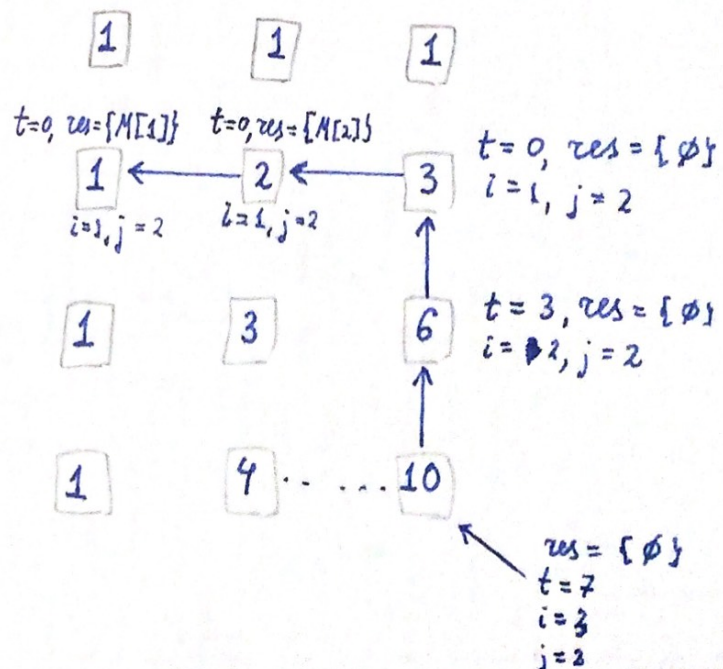 1 1 1
t=0, res={M[1]} t=0, res={M[2]} t=0, res={ø}
1 2 3 i=1, j=2
i=1, j=2 i=1, j=2
1 3 6 t=3, res={ø}
i=2, j=2
1 4 ..... 10
res={ø}
t=7
i=3
j=2